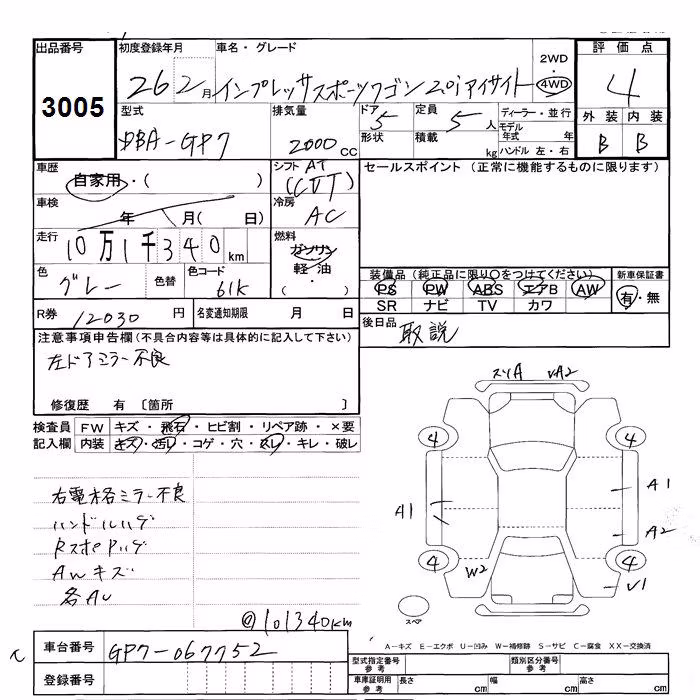 出品番号 初度登録年月 車名・グレード 2WD・4WD 評価点
3005 26 2月 インプレッサスポーツワゴン 2.0iアイサイト 4
型式 排気量 ドア 定員 ディーラー・並行 外装 内装
DBA-GP7 2000CC 5 5人 モデル年式 年 B B
形状 積載 kg ハンドル 左・右
車歴 シフト AT セールスポイント (正常に機能するものに限ります)
自家用・( ) (CVT)
車検 年 月( 日) 冷房 AC
走行 10万1千340km 燃料 ガソリン・軽油・( )
色 グレー 色替 色コード 61K
装備品 (純正品に限り○をつけてください) 新車保証書
PS PW ABS エアB AW 有・無
SR ナビ TV カワ
R券 12030円 名変通知期限 月 日
後日品 取説
注意事項申告欄(不具合内容等は具体的に記入して下さい)
左ドアミラー不良
修復歴 有〔箇所 〕
検査員記入欄 FW キズ・飛石・ヒビ割・リペア跡・×要
内装 キズ・汚レ・コゲ・穴・スレ・キレ・破レ
スリA VA2
4 4
A1 A1
A2
4 4
W2 V1
スペア
右電格ミラー不良
ハンドルハゲ
RスポPハゲ
AWキズ
各AU
@101340km
車台番号 GP7-067752
登録番号
A-キズ E-エクボ U-凹み W-補修跡 S-サビ C-腐食 XX-交換済
型式指定番号 参考 類別区分番号 参考
車庫証明用 参考 長さ cm 幅 cm 高さ cm